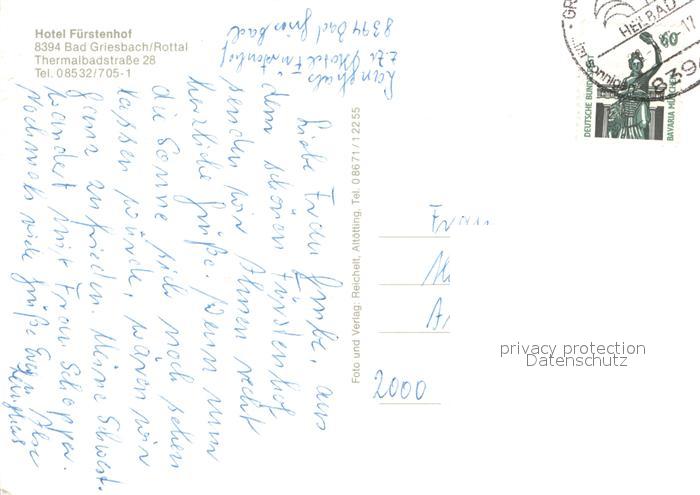 Hotel Fürstenhof
8394 Bad Griesbach/Rottal
Thermalbadstraße 28
Tel. 08532/705-1
z.Zt. Hotel Fürstenhof
8394 Bad Griesbach
Liebe Frau Grube, aus
dem schönen Fürstenhof
senden wir Ihnen recht
herzliche Grüße. Wenn nun
die Sonne sich noch sehen
lassen würde, wären wir
ganz zufrieden. Meine Schwest.
wandert mit Frau Schopper.
Nochmals viele Grüße Ilse
Foto und Verlag: Reichelt, Altötting, Tel. 08671/12255
Frau
2000
privacy protection
Datenschutz
HEILBAD
17
839
60
DEUTSCHE BUND
BAVARIA MÜNCHEN